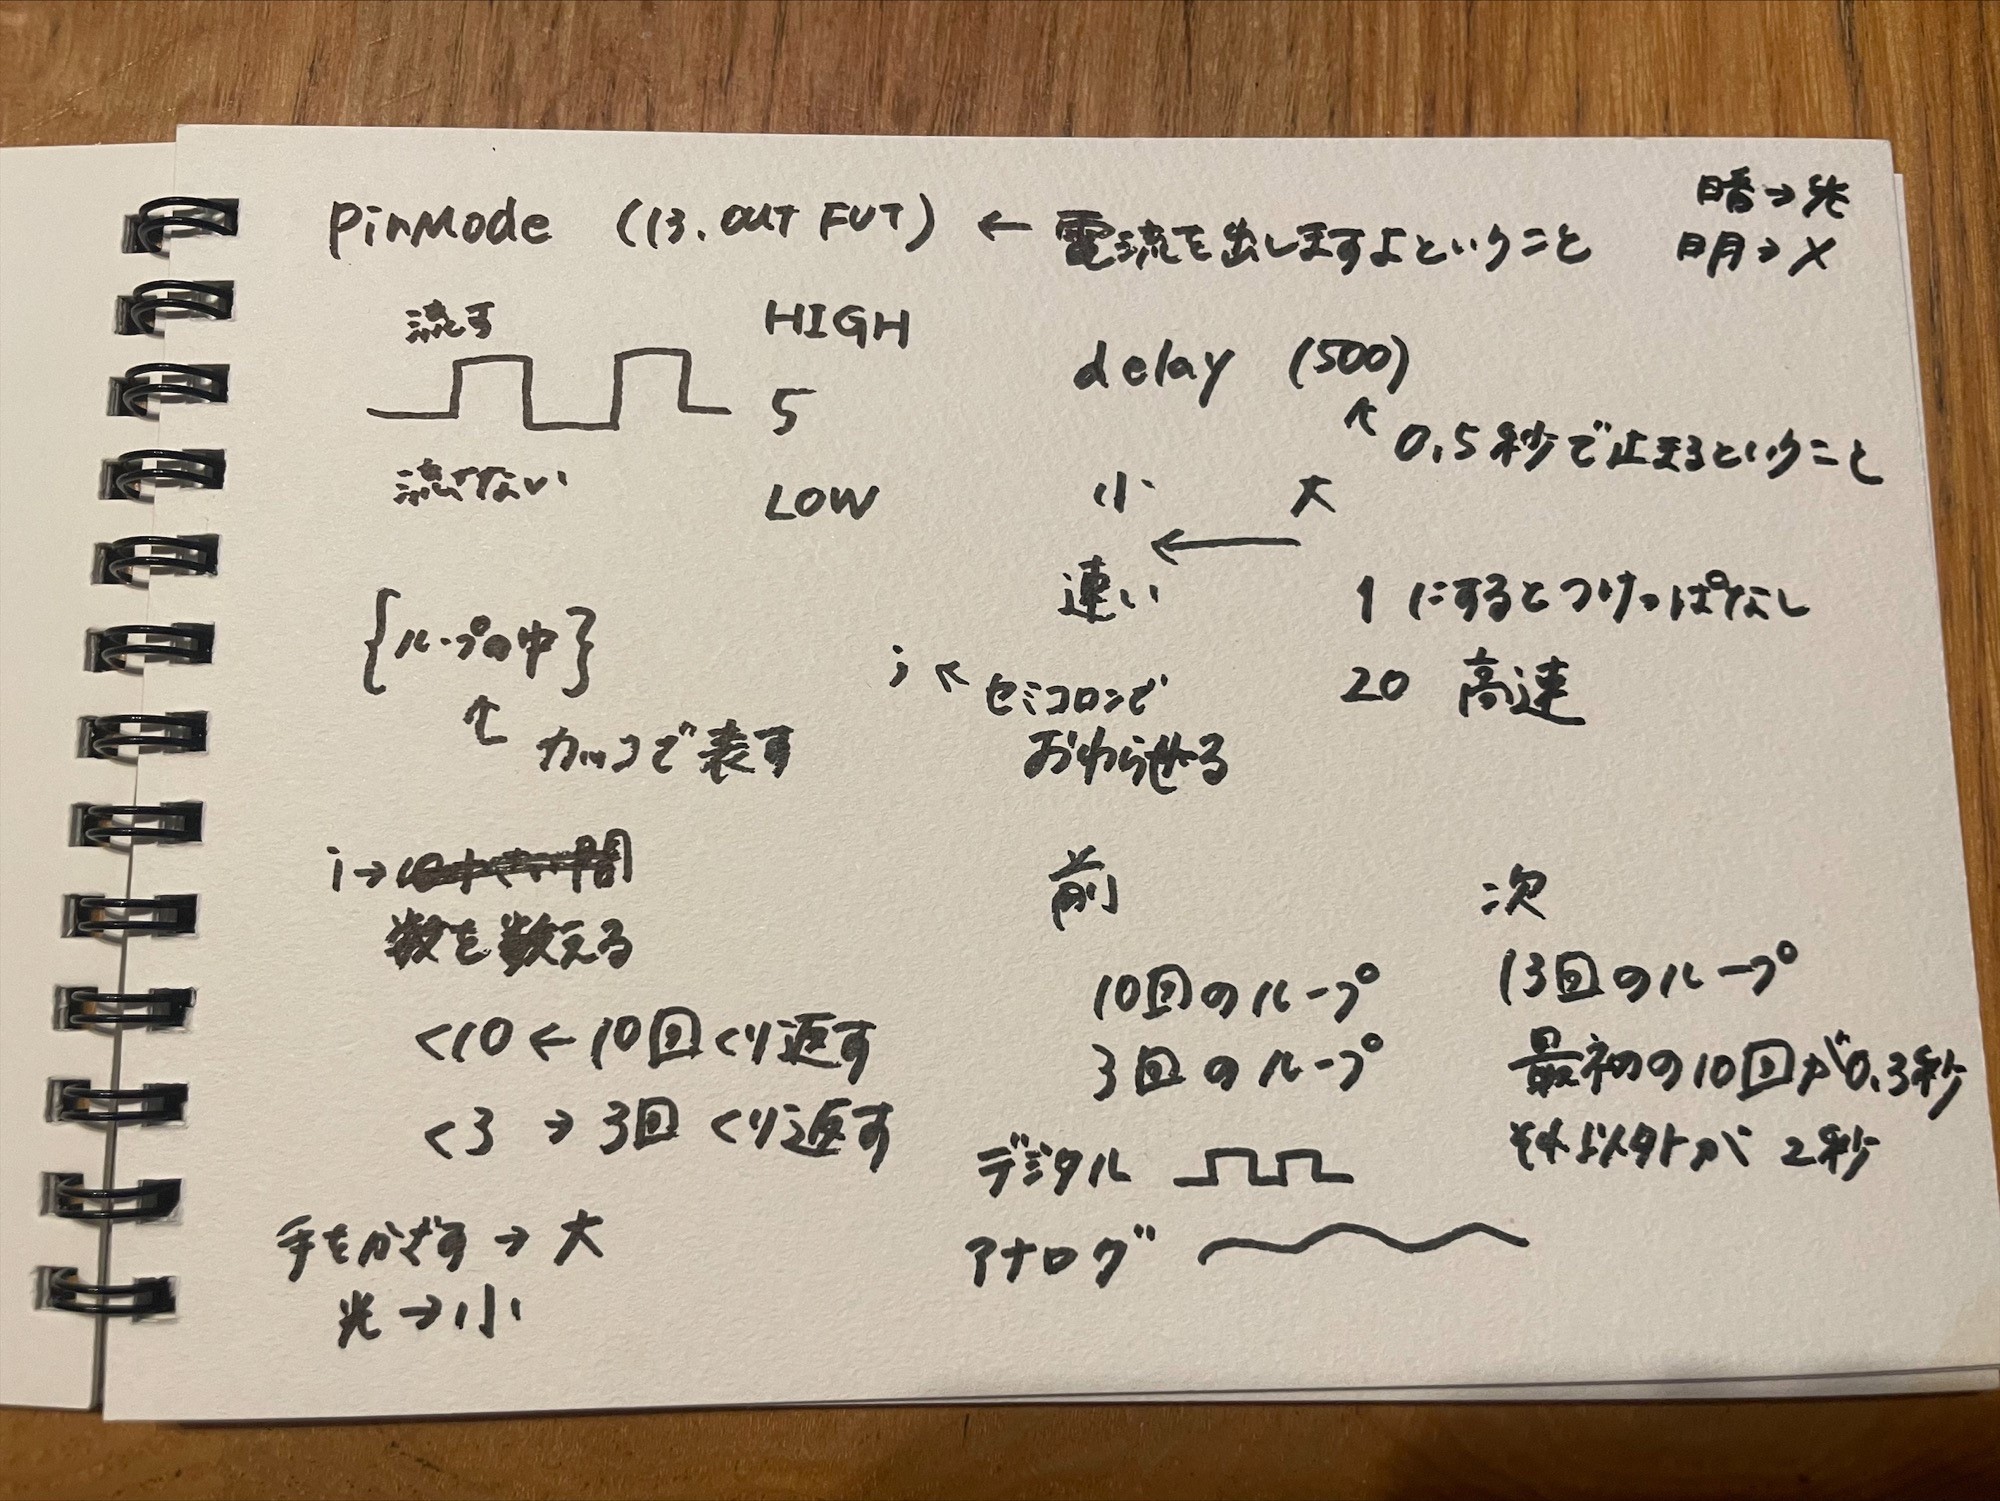 pinMode (13. OUT FUT) ← 電流を出しますよということ
暗→光
明→×
流す
HIGH
5
流さない
LOW
delay (500)
↖ 0.5秒で止まるということ
小 ← 大
速い
1 にするとつけっぱなし
20 高速
{ループの中}
↑ カッコで表す
; ↖ セミコロンで
おわらせる
i→
数を数える
<10 ← 10回くり返す
<3 → 3回 くり返す
手をかざす → 大
光 → 小
前
10回のループ
3回のループ
次
13回のループ
最初の10回が0.3秒
それ以外が 2秒
デジタル
アナログ